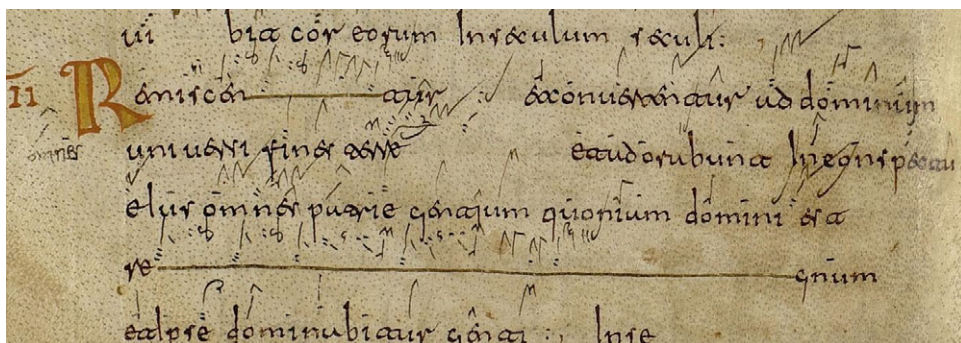 III bit cor eorum In seculum seculi:
II Reminiscentur : et conuertentur ad dominum
omnes uniuersi fines terre et adorabunt In conspectu
eius omnes patrie gentium quoniam domini est
regnum
et Ipse dominabitur genti :